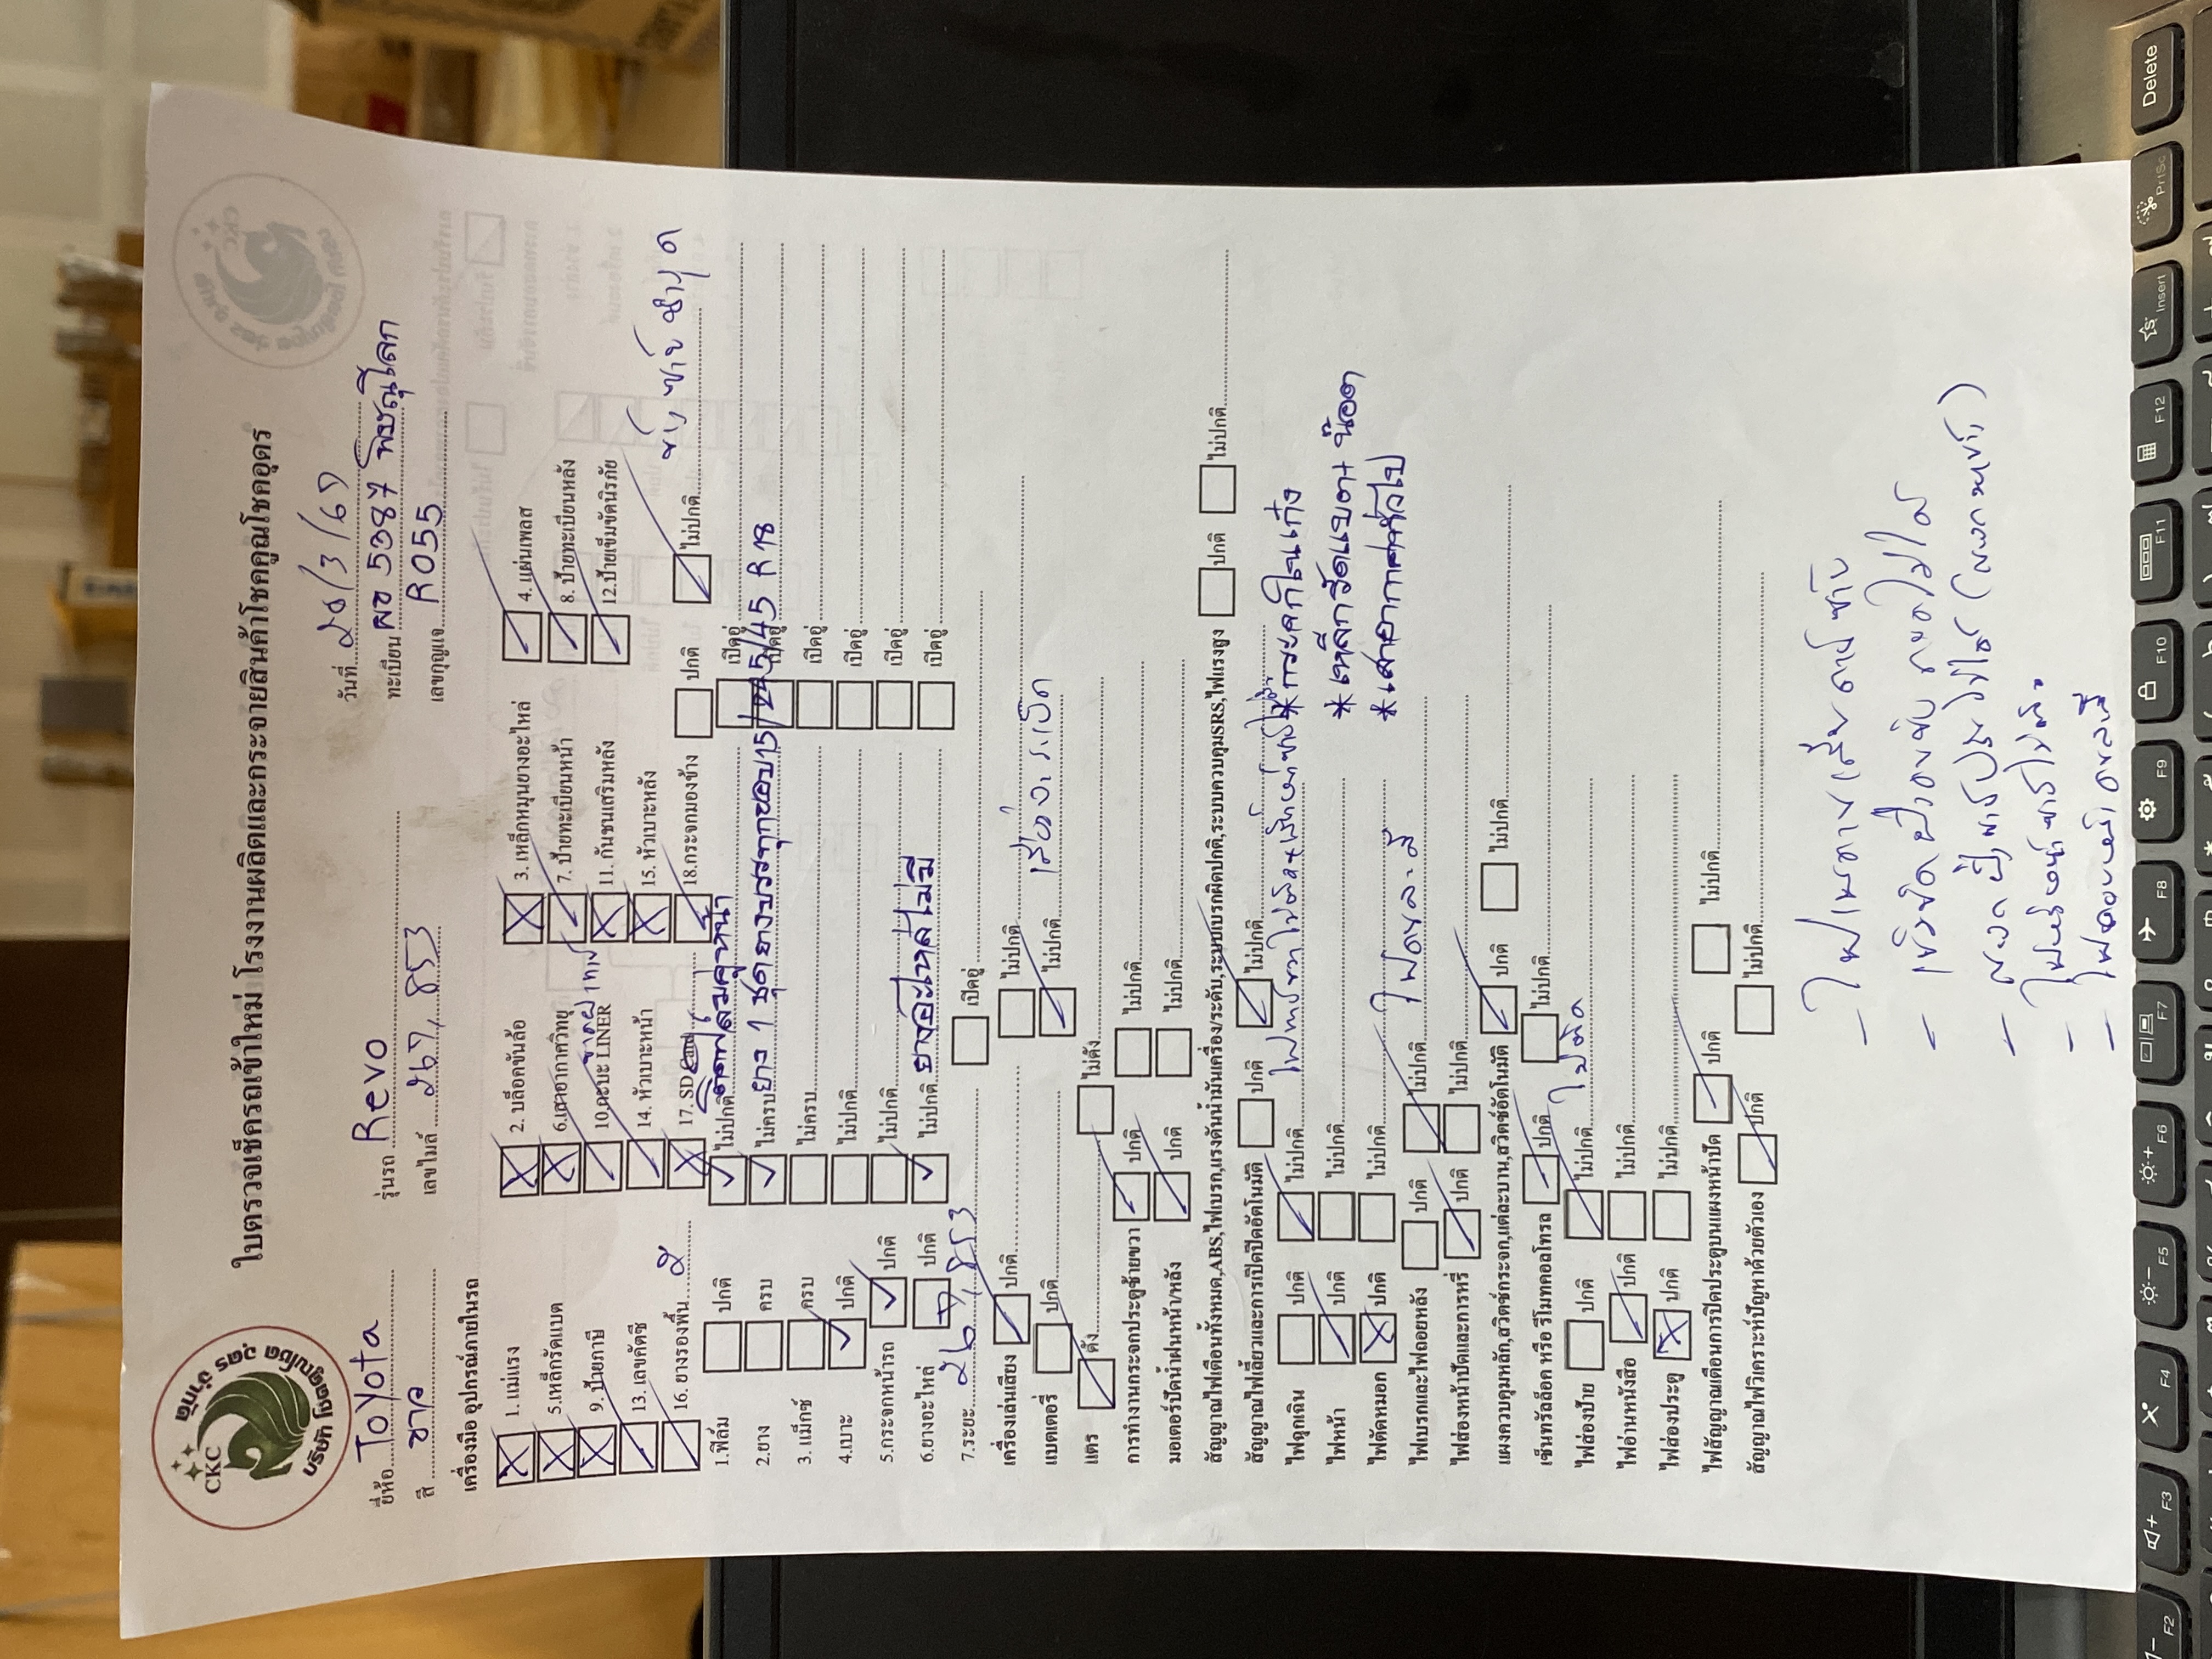 CKC
บริษัท โชคคูณโชค อุดร จำกัด
ใบตรวจเช็ครถเข้าใหม่ โรงงานผลิตและกระจายสินค้าโชคคูณโชคอุดร
วันที่ 28/3/67
ยี่ห้อ Toyota รุ่นรถ Revo ทะเบียน ผอ 5387 พิษณุโลก
สี ขาว เลขไมล์ 267,853 เลขกุญแจ R055
เครื่องมือ อุปกรณ์ภายในรถ
1. แม่แรง 2. บล็อคขันล้อ 3. เหล็กหมุนยางอะไหล่ 4. แผ่นเพลส
5.เหล็กรัดแบต 6.เสาอากาศวิทยุ 7. ป้ายทะเบียนหน้า 8. ป้ายทะเบียนหลัง
9. ป้ายภาษี 10.กะบะ LINER 11. กันชนเสริมหลัง 12.ป้ายเข็มขัดนิรภัย
13. เลขคัตซี 14. หัวเบาะหน้า 15. หัวเบาะหลัง
16. ยางรองพื้น 2 17. SD Card 18.กระจกมองข้าง ปกติ ไม่ปกติ ชำรุด
1.ฟิล์ม ปกติ ไม่ปกติ ติดฟิล์มคู่หน้า เปิดอู่
2.ยาง ครบ ไม่ครบ ยาง 1 ชุด ยางบรรทุกขอบ15/ 225/45 R 18 เปิดอู่
3. แม็กซ์ ครบ ไม่ครบ เปิดอู่
4.เบาะ ปกติ ไม่ปกติ เปิดอู่
5.กระจกหน้ารถ ปกติ ไม่ปกติ เปิดอู่
6.ยางอะไหล่ ปกติ ไม่ปกติ ยางอะไหล่ไม่มี เปิดอู่
7.ระยะ 267,853 เปิดอู่
เครื่องเล่นเสียง ปกติ ไม่ปกติ
แบตเตอรี่ ปกติ ไม่ปกติ
แตร ดัง ไม่ดัง
การทำงานกระจกประตูซ้ายขวา ปกติ ไม่ปกติ
มอเตอร์ปัดน้ำฝนหน้า/หลัง ปกติ ไม่ปกติ
สัญญาณไฟเตือนทั้งหมด,ABS,ไฟเบรก,แรงดันน้ำมันเครื่อง/ระดับ,ระบบเบรกผิดปกติ,ระบบควบคุมSRS,ไฟแรงสูง ปกติ ไม่ปกติ
สัญญาณไฟเลี้ยวและการเปิดปิดอัตโนมัติ ปกติ ไม่ปกติ
ไฟฉุกเฉิน ปกติ ไม่ปกติ *กระจกในเก๋ง
ไฟหน้า ปกติ ไม่ปกติ *เหล็กรัดแบต+ น๊อต
ไฟตัดหมอก ปกติ ไม่ปกติ *เสาอากาศทั่วไป
ไฟเบรกและไฟถอยหลัง ปกติ ไม่ปกติ
ไฟส่องหน้าปัดและการหรี่ ปกติ ไม่ปกติ
แผงควบคุมหลัก,สวิตช์กระจก,แต่ละบาน,สวิตช์อัตโนมัติ ปกติ ไม่ปกติ
เซ็นทรัลล็อค หรือ รีโมทคอลโทรล ปกติ ไม่ปกติ
ไฟส่องป้าย ปกติ ไม่ปกติ ไม่ติด
ไฟอ่านหนังสือ ปกติ ไม่ปกติ
ไฟส่องประตู ปกติ ไม่ปกติ
ไฟสัญญาณเตือนการปิดประตูบนแผงหน้าปัด ปกติ ไม่ปกติ
สัญญาณไฟวิเคราะห์ปัญหาด้วยตัวเอง ปกติ ไม่ปกติ
F2
F3
F4
F5
F6
F7
F8
F9
F10
F11
F12
Insert
PrtSc
Delete